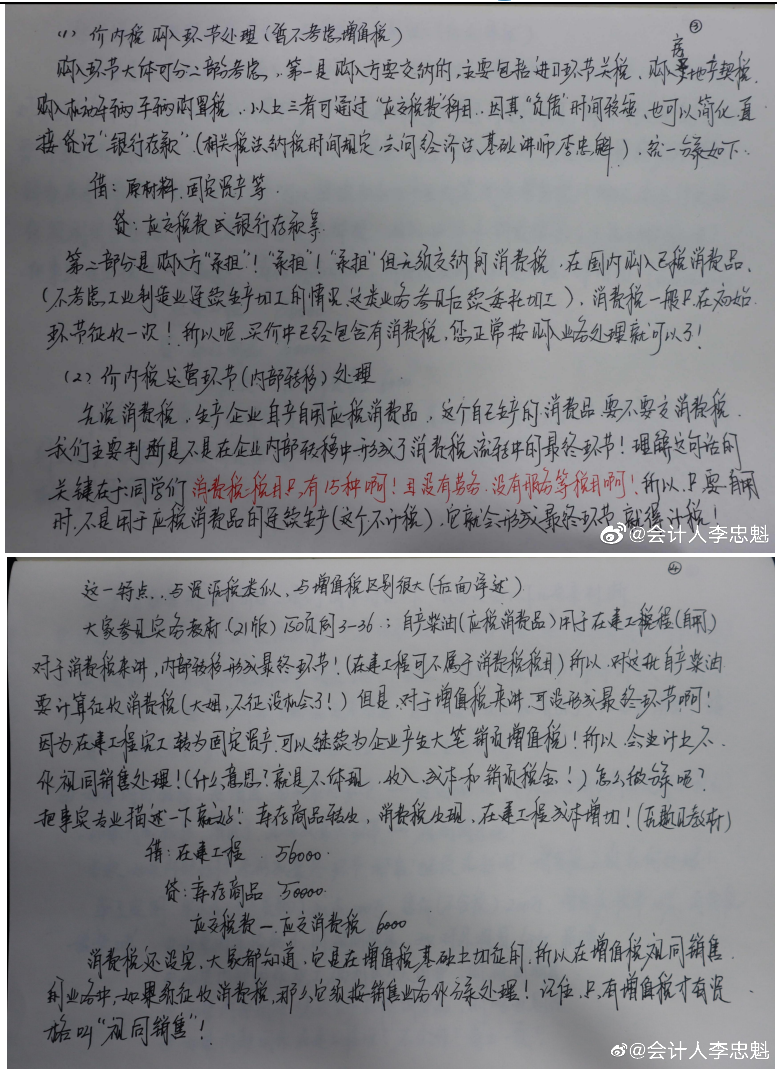 ③
(1) 价内税购入环节处理(暂不考虑增值税)
购入环节大体可分二部分考虑。第一是购入方要交纳的,主要包括进口环节关税、购入房地产契税、
购入机动车辆车辆购置税。以上三者可通过"应交税费"科目。因其"负债"时间较短,也可以简化,直
接贷记"银行存款"(相关税法纳税时间规定,去问经济法基础讲师李忠魁)。统一分录如下:
借:原材料、固定资产等
贷:应交税费或银行存款等
第二部分是购入方"承担"!"承担"!"承担"但无须交纳的消费税。在国内购入已税消费品,
(不考虑工业制造业连续生产加工的情况,这类业务参见后续委托加工),消费税一般只在初始
环节征收一次!所以呢,买价中已经包含有消费税,您正常按购入业务处理就可以了!
(2)价内税运营环节(内部转移)处理
先说消费税,生产企业自产自用应税消费品,这个自己生产的消费品要不要交消费税,
我们主要判断是不是在企业内部转移中形成了消费税流转中的最终环节!理解这句话的
关键在于同学们消费税税目只有15种啊!且没有劳务、没有服务等税目啊!所以,只要自用
时,不是用于应税消费品的连续生产(这个不计税),它就会形成最终环节,就得计税!
@会计人李忠魁
④
这一特点,与资源税类似,与增值税区别很大(后面详述)
大家参见实务教材(21版)150页例3-36:自产柴油(应税消费品)用于在建工程(自用)
对于消费税来讲,内部转移形成最终环节!(在建工程可不属于消费税税目)所以,对这批自产柴油
要计算征收消费税(大姐,不征没机会了!)但是,对于增值税来讲,可没形成最终环节啊!
因为在建工程完工转为固定资产,可以继续为企业产生大笔销项增值税!所以,会计上不
作视同销售处理!(什么意思?就是不体现收入、成本和销项税金!)怎么做分录呢?
把事实专业描述一下就好!库存商品转出,消费税出现,在建工程成本增加!(原题见教材)
借:在建工程 56000
贷:库存商品 50000
应交税费—应交消费税 6000
消费税还没完,大家都知道,它是在增值税基础上加征的,所以在增值税视同销售
的业务中,如果须征收消费税,那么它须按销售业务作分录处理!记住,只有增值税才有资
格叫"视同销售"!
@会计人李忠魁